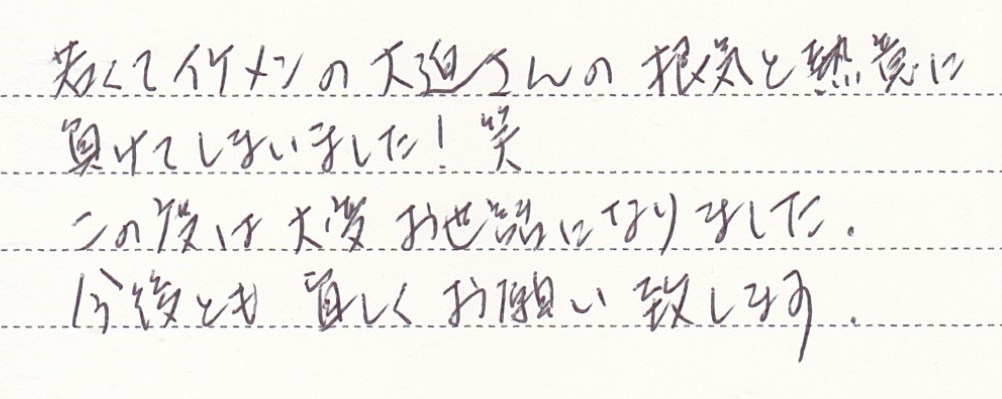 若くてイケメンの大迫さんの根気と熱意に
負けてしまいました！笑
この度は大変お世話になりました.
今後とも宜しくお願い致します.